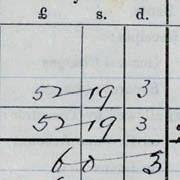 £ s. d.
52 19 3
52 19 3
6 0 3